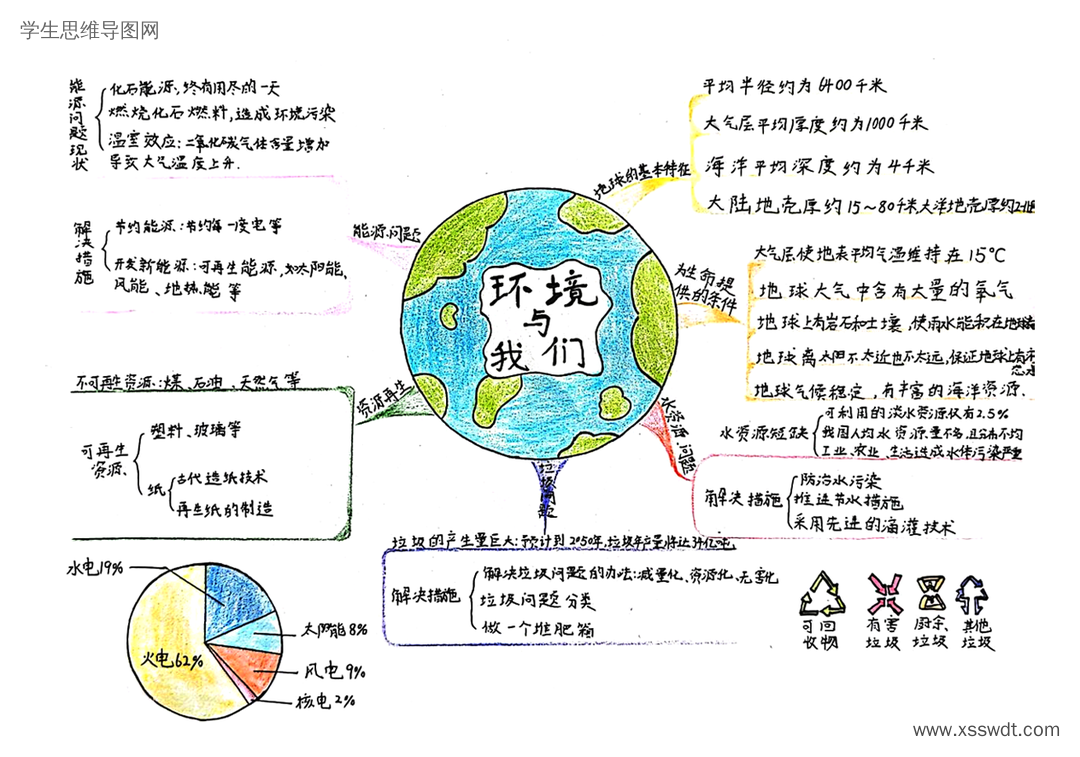 学生思维导图网
环境
与
我们
能源问题
能源问题现状
化石能源,终有用尽的一天
燃烧化石燃料,造成环境污染
温室效应:二氧化碳气体含量增加
导致大气温度上升.
解决措施
节约能源:节约每一度电等
开发新能源:可再生能源,如太阳能、
风能、地热能等
资源再生
不可再生资源:煤、石油、天然气等
可再生
资源
塑料、玻璃等
纸
古代造纸技术
再生纸的制造
水电19%
太阳能8%
风电9%
核电2%
火电62%
地球的基本特征
平均半径约为6400千米
大气层平均厚度约为1000千米
海洋平均深度约为4千米
大陆地壳厚约15~80千米大洋地壳厚约
为生命提
供的条件
大气层使地表平均气温维持在15°C
地球大气中含有大量的氧气
地球上有岩石和土壤,使雨水能积在地球表
地球离太阳不太近也不太远,保证地球上有
地球气候稳定,有丰富的海洋资源.
水资源问题
水资源短缺
可利用的淡水资源仅有2.5%
我国人均水资源量不多,且分布不均
工业、农业、生活造成水体污染严重
解决措施
防治水污染
推进节水措施
采用先进的海灌技术
垃圾问题
垃圾的产生量巨大:预计到2050年,垃圾年产量将达34亿吨
解决措施
解决垃圾问题的办法:减量化、资源化、无害化
垃圾问题分类
做一个堆肥箱
可回
收物
有害
垃圾
厨余
垃圾
其他
垃圾
www.xsswdt.com